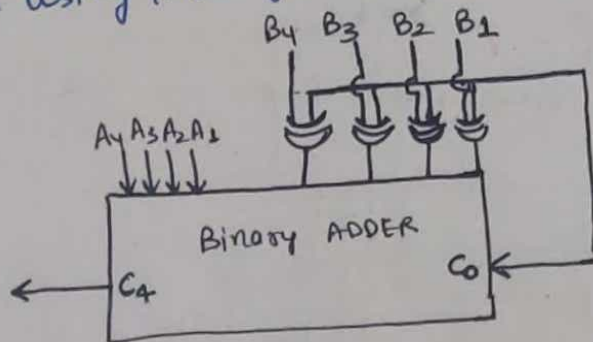 B4 B3 B2 B1
A4 A3 A2 A1
Binary ADDER
C4 C0